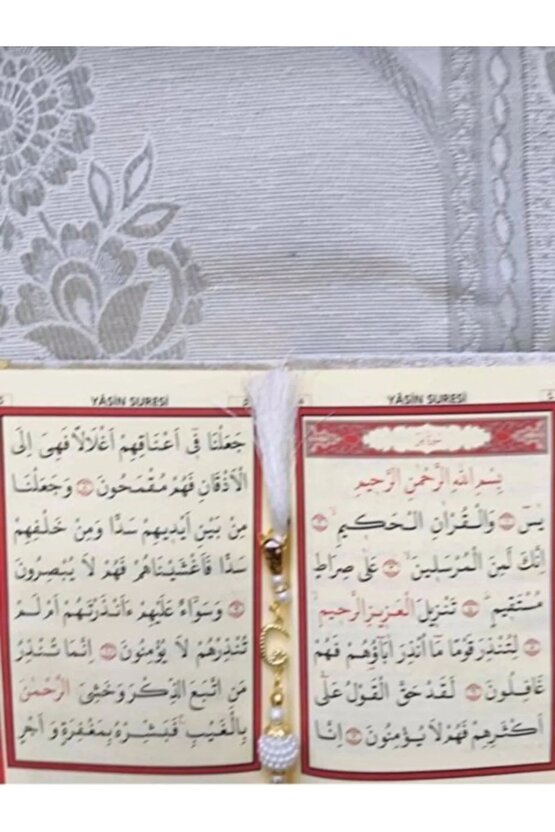 YÂSİN SURESİ
سورة يس
بِسْمِ اللّٰهِ الرَّحْمٰنِ الرَّحِيمِ
يٰسٓ وَالْقُرْاٰنِ الْحَكِيمِ
اِنَّكَ لَمِنَ الْمُرْسَلِينَ عَلٰى صِرَاطٍ
مُسْتَقِيمٍ تَنْزِيلَ الْعَزِيزِ الرَّحِيمِ
لِتُنْذِرَ قَوْمًا مَٓا اُنْذِرَ اٰبَٓاؤُهُمْ فَهُمْ
غَافِلُونَ لَقَدْ حَقَّ الْقَوْلُ عَلٰٓى
اَكْثَرِهِمْ فَهُمْ لَا يُؤْمِنُونَ اِنَّا
YÂSİN SURESİ
جَعَلْنَا فِٓى اَعْنَاقِهِمْ اَغْلَالًا فَهِىَ اِلَى
الْاَذْقَانِ فَهُمْ مُقْمَحُونَ وَجَعَلْنَا
مِنْ بَيْنِ اَيْدِيهِمْ سَدًّا وَمِنْ خَلْفِهِمْ
سَدًّا فَاَغْشَيْنَاهُمْ فَهُمْ لَا يُبْصِرُونَ
وَسَوَٓاءٌ عَلَيْهِمْ ءَاَنْذَرْتَهُمْ اَمْ لَمْ
تُنْذِرْهُمْ لَا يُؤْمِنُونَ اِنَّمَا تُنْذِرُ
مَنِ اتَّبَعَ الذِّكْرَ وَخَشِىَ الرَّحْمٰنَ
بِالْغَيْبِ فَبَشِّرْهُ بِمَغْفِرَةٍ وَاَجْرٍ